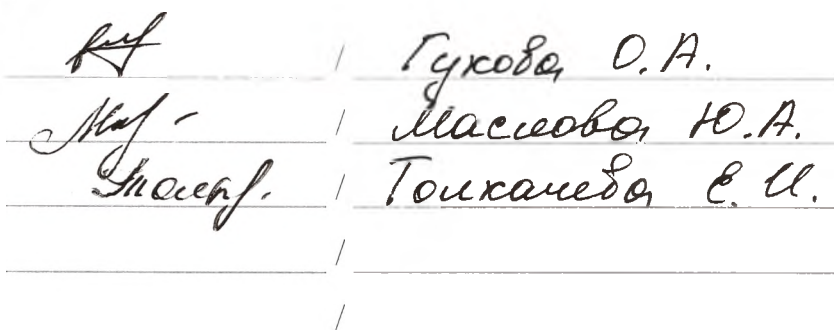 / Гукова О.А.
/ Маслова Ю.А.
/ Толкачева Е.И.
/
/